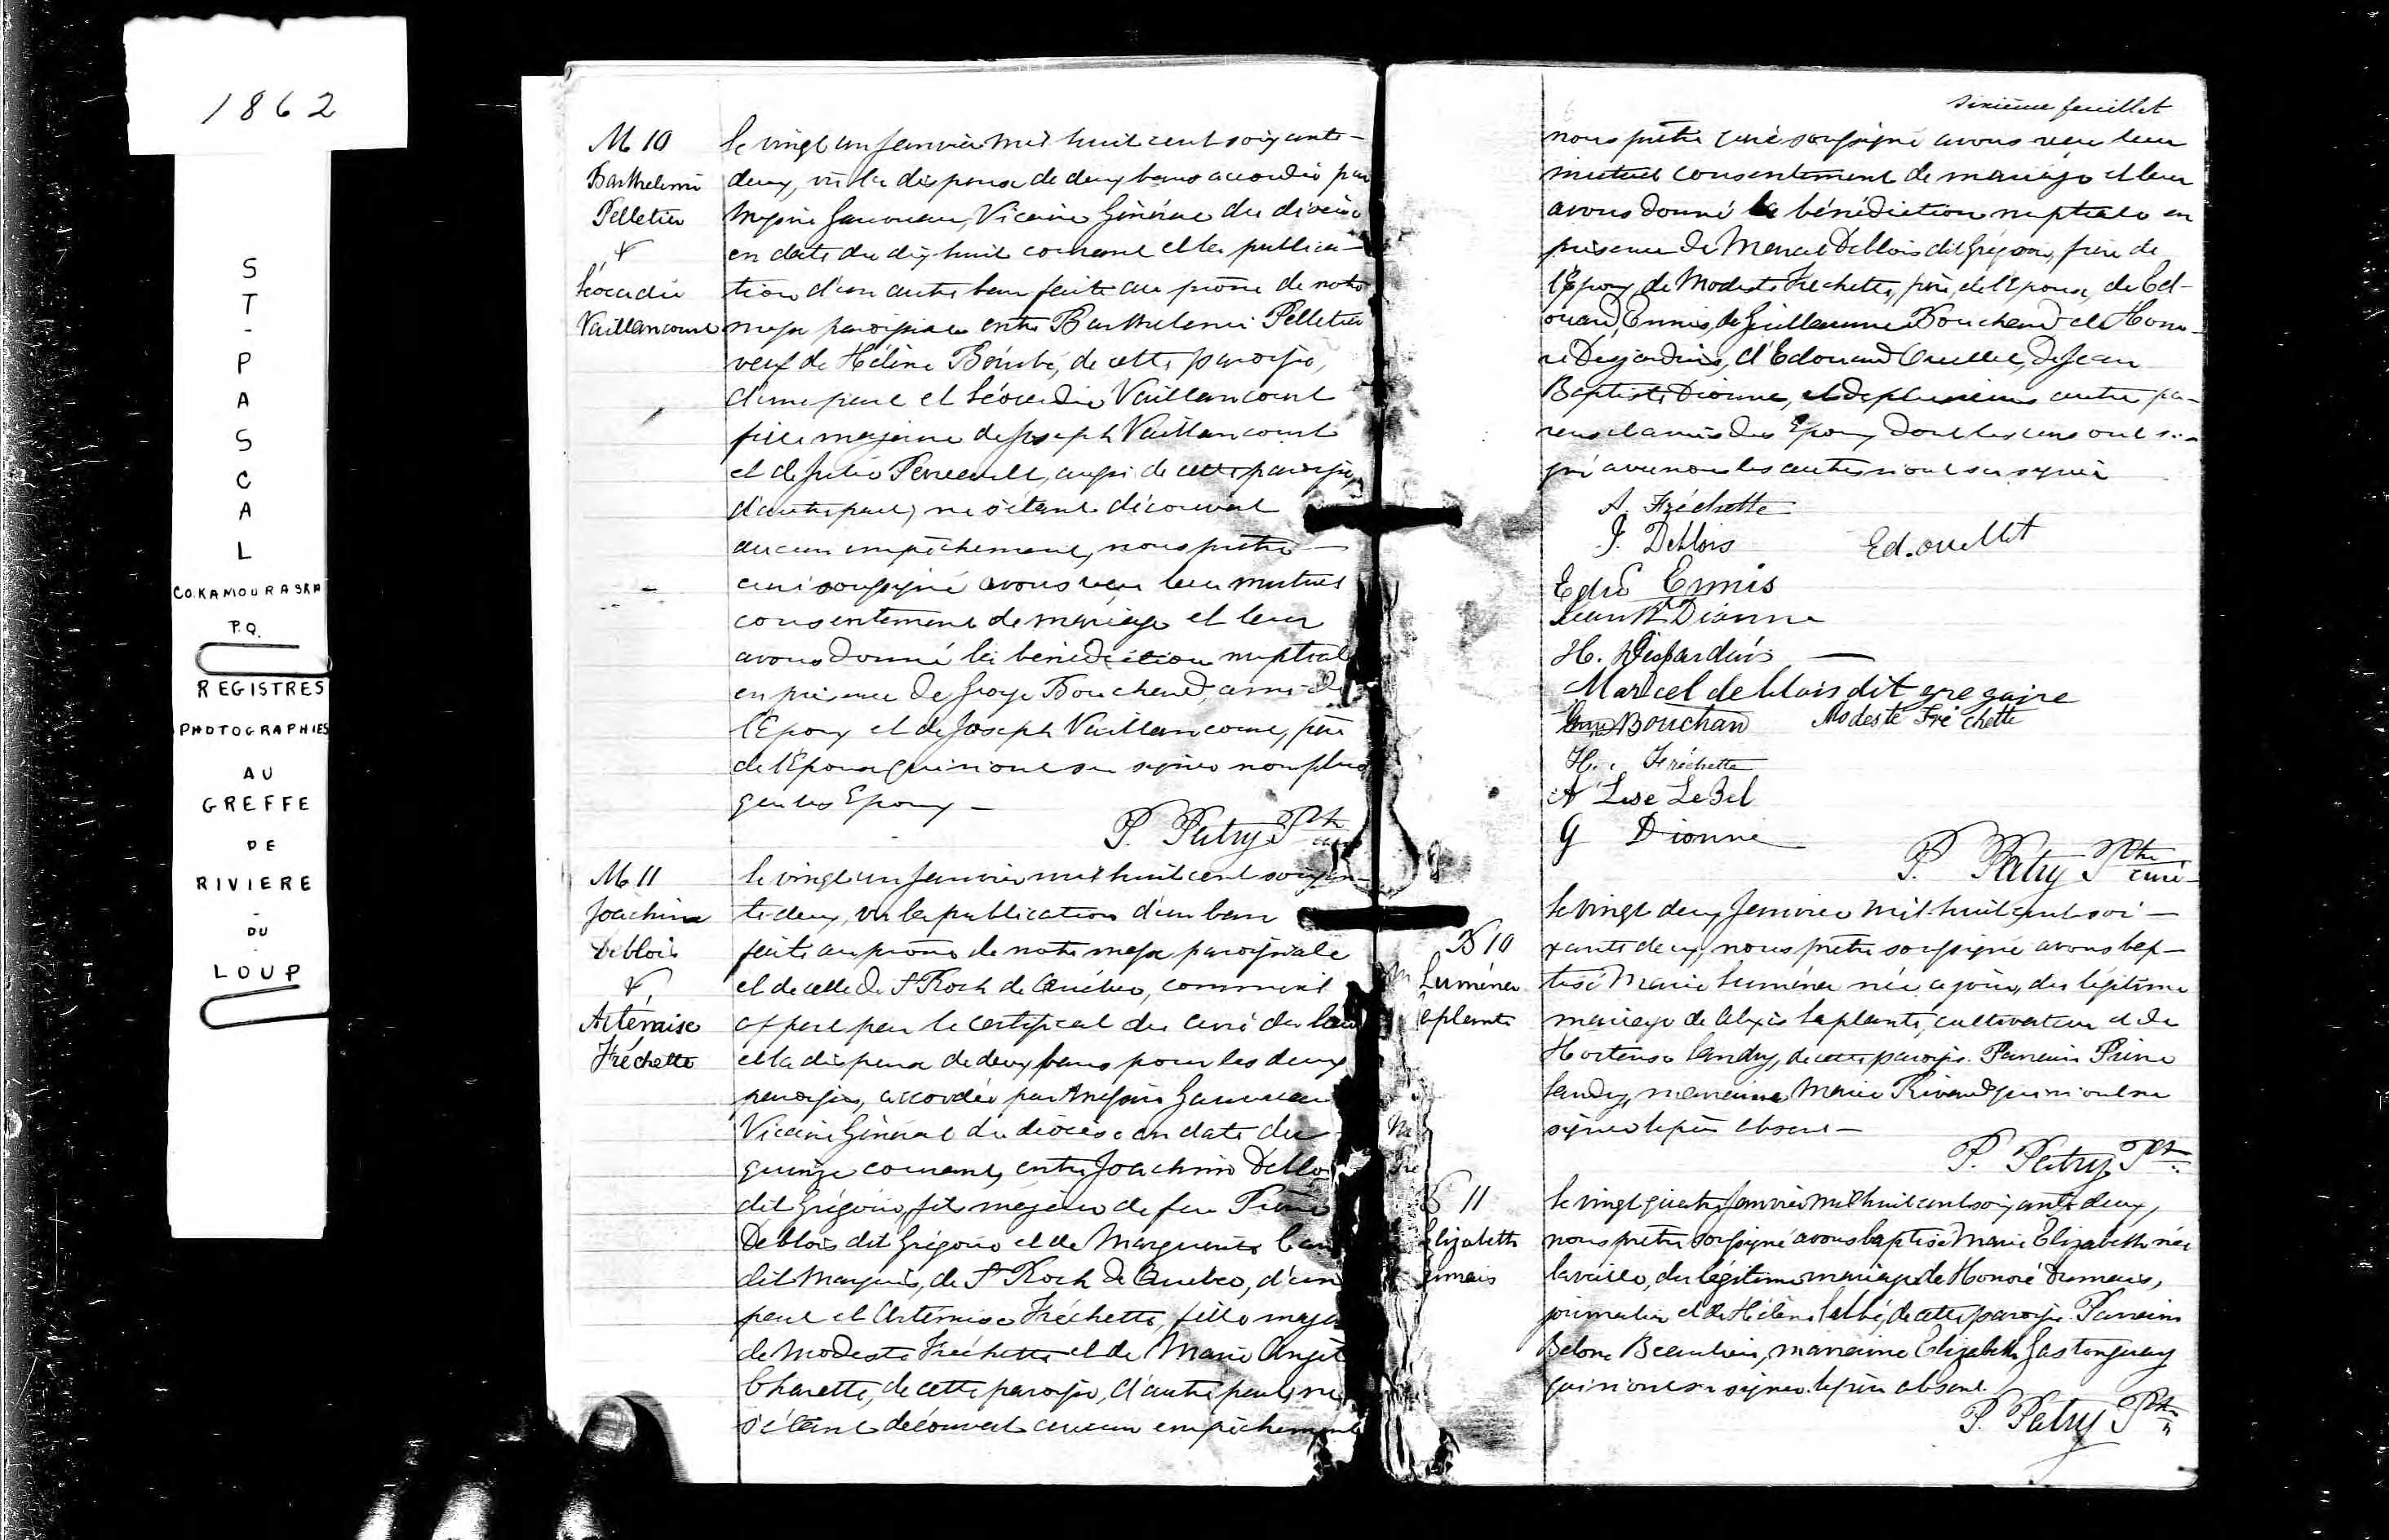 1862
ST-PASCAL
CO. KAMOURASKA
P.Q.
REGISTRES
PHOTOGRAPHIES
AU
GREFFE
DE
RIVIERE
-
DU
-
LOUP
M 10
Barthelemi
Pelletier
&
Léocadie
Vaillancourt
le vingt un janvier mil huit cent soixante-
deux, vu la dispense de deux bans accordée par
Messire Gauvreau, Vicaire Général du diocèse
en date du dix huit courant et la publica-
tion d'un autre ban faite au prône de notre
messe paroissiale entre Barthelemi Pelletier
veuf de Hélène Bérubé, de cette paroisse,
d'une part et Léocadie Vaillancourt
fille majeure de Joseph Vaillancourt
et de Julie Perreault, aussi de cette paroisse,
d'autre part, ne s'étant découvert
aucun empêchement, nous prêtre
curé soussigné avons reçu leur mutuel
consentement de mariage et leur
avons donné la bénédiction nuptiale
en présence de George Bouchard, ami de
l'Epoux et de Joseph Vaillancourt, père
de l'Epouse qui n'ont su signer non plus
que les Epoux -
P. Patry Ptre
curé
M 11
Joachim
Deblois
&
Artémise
Fréchette
le vingt un janvier mil huit cent soixan-
te deux, vu la publication d'un ban
faite au prône de notre messe paroissiale
et de celle de St Roch de Québec, comme il
appert par le certificat du curé du lieu
et la dispense de deux bans pour les deux
paroisses, accordée par Messire Gauvreau
Vicaire Général du diocèse en date du
quinze courant, entre Joachim Deblois
dit Grégoire, fils majeur de feu Pierre
Deblois dit Grégoire et de Marguerite
dit Marquis, de St Roch de Québec, d'une
part et Artémise Fréchette, fille majeure
de Modeste Fréchette et de Marie
Charette, de cette paroisse, d'autre part, ne
s'étant découvert aucun empêchement
sixième feuillet
nous prêtre curé soussigné avons reçu leur
mutuel consentement de mariage et leur
avons donné la bénédiction nuptiale en
présence de Marcel Deblois dit Grégoire, frère de
l'Epoux, de Modeste Fréchette, père de l'Epouse, de Ed-
ouard Ennis, de Guillaume Bouchard de Hono-
ré Desjardins, d'Edouard Ouellet, de Jean
Baptiste Dionne, et de plusieurs autres pa-
rens et amis des Epoux dont les uns ont si-
gné avec nous les autres n'ont su signer
A. Fréchette
J. Deblois
Ed. ouellet
Edrd Ennis
Jean Bte Dionne
H. Desjardins
Marcel deblois dit gregoire
Bouchard
Modeste Fréchette
H. Fréchette
A Lse LeBel
G Dionne
P. Patry Ptre
curé
B 10
M Luména
Laplante
le vingt deux janvier mil-huit cent soi-
xante deux, nous prêtre soussigné avons bap-
tisé Marie Luména née ce jour, du légitime
mariage de Alexis Laplante, cultivateur et de
Hortense Landry, de cette paroisse. Parrain Prime
Landry, marraine Marie Rivard qui n'ont su
signer le père absent -
P. Patry Ptre
B 11
Elizabeth
Dumais
le vingt quatre janvier mil huit cent soixante deux,
nous prêtre soussigné avons baptisé Marie Elizabeth née
la veille, du légitime mariage de Honoré Dumais,
journalier et de Hélène Labbé, de cette paroisse. Parrain
Belone Beaulieu, marraine Elizabeth Gastonguay
qui n'ont su signer le père absent.
P. Patry Ptre